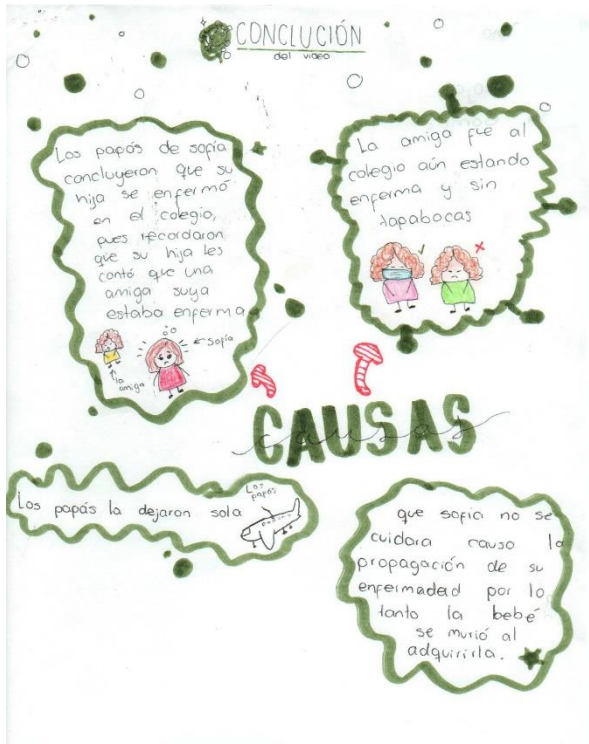 CONCLUCIÓN
del video
Los papás de sofía
concluyeron que su
hija se enfermó
en el colegio,
pues recordaron
que su hija les
contó que una
amiga suya
estaba enferma
la
amiga
sofia
La amiga fue al
colegio aún estando
enferma y sin
tapabocas
CAUSAS
causas
Los papás la dejaron sola
Los
papás
que sofia no se
cuidara causo la
propagación de su
enfermadad por lo
tanto la bebé
se murió al
adquirirla.